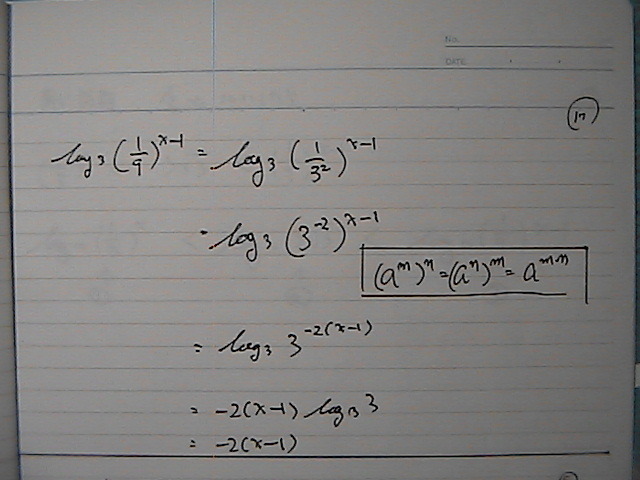 No.
DATE
(17)
log₃(1/9)^(x-1) = log₃(1/3²)^(x-1)
= log₃(3⁻²)^(x-1)
(a^m)^n = (a^n)^m = a^(m·n)
= log₃ 3^(-2(x-1))
= -2(x-1) log₃ 3
= -2(x-1)